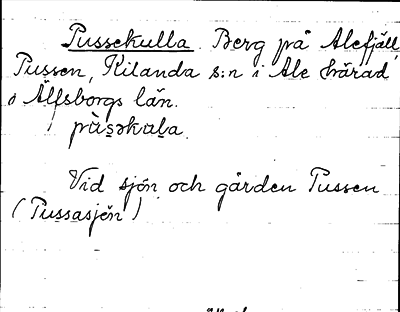 Pussekulla. Berg på Alefjäll,
Pussen, Kilanda s:n i Ale härad
o Älfsborgs län.
pùsəkula.
Vid sjön och gården Pussen
(Pussasjön)